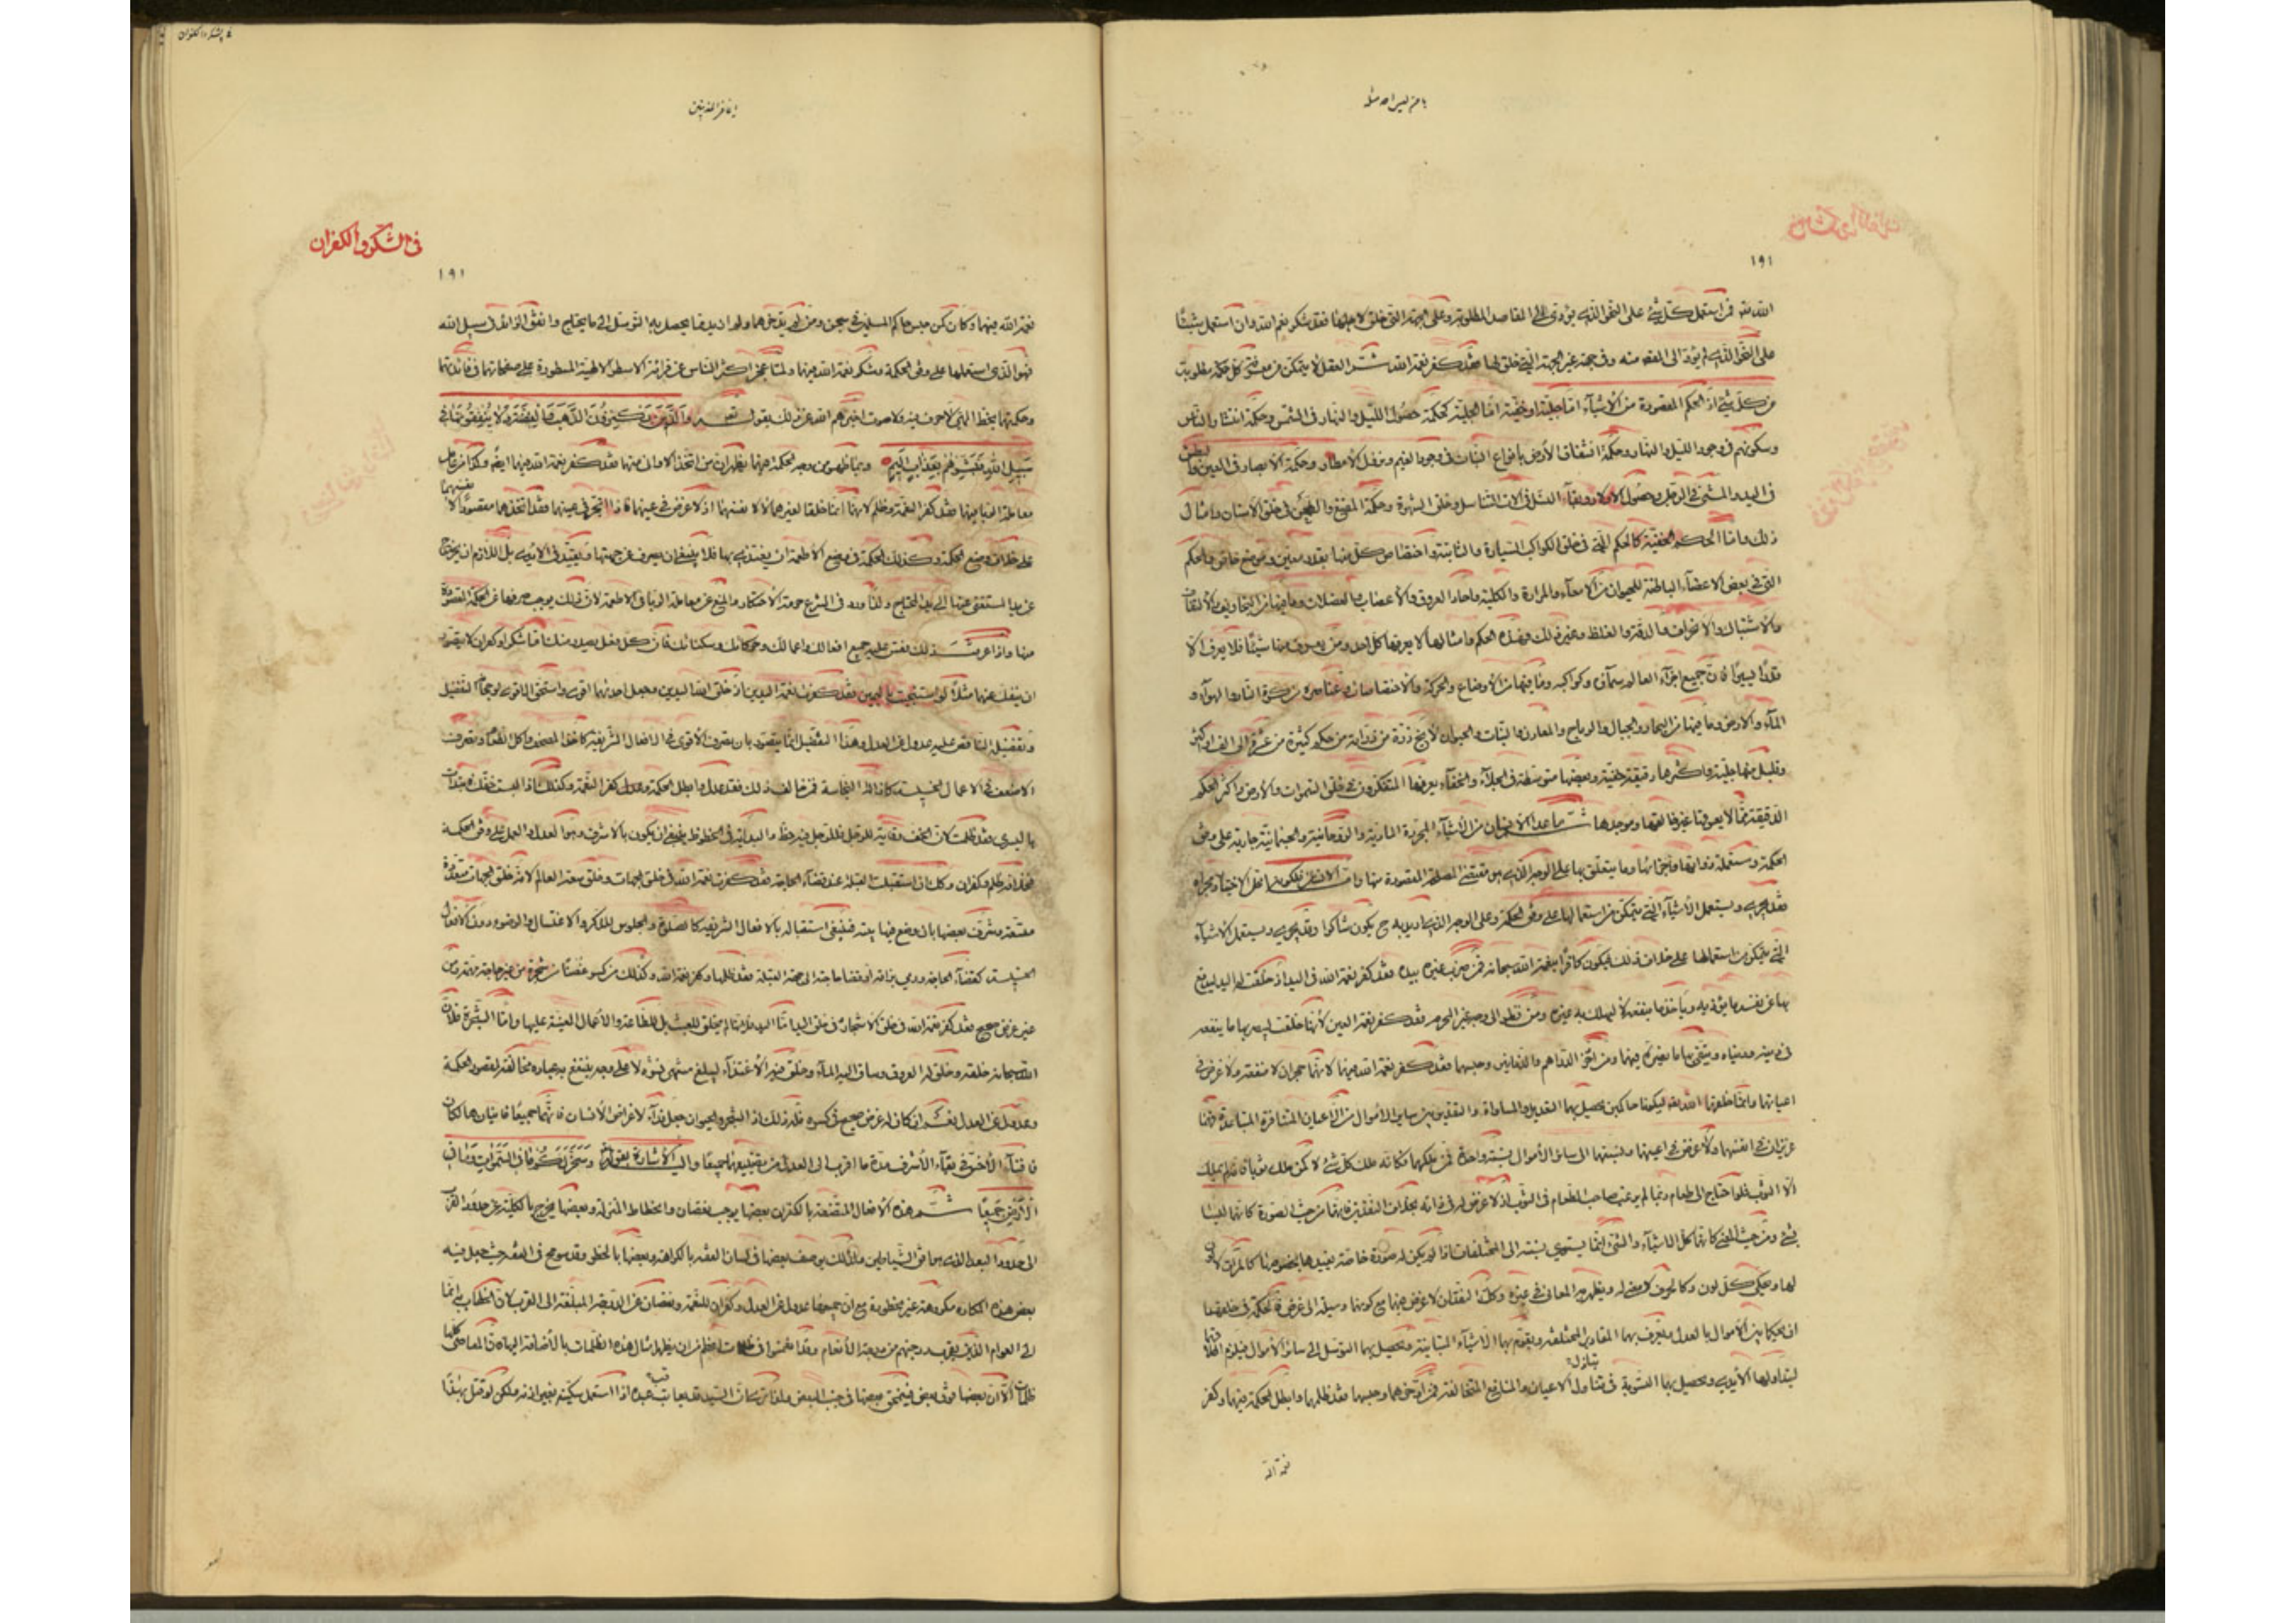 يا من ليس احد مثله
١٩١
الله فمن استعمل كل شيء على النحو الذي يؤدي الى المقاصد المطلوبة وعلى الجهة التي خلق لاجلها فقد شكر نعم الله وان استعمل شيئا
على النحو الذي لم يؤد الى المقصود منه وفي جهة غير الجهة التي خلق لها فقد كفر نعمة الله ثم العقل لا يتمكن من معرفة كل حكمة مطلوبة
من كل شيء اذ الحكم المقصودة من الاشياء اما جلية او خفية اما الجلية كحكمة حصول الليل والنهار في الشمس وحكمة انتشار الناس
وسكونهم في وجود الليل والنهار وحكمة انشقاق الارض بانواع النبات في وجود الغيم ونزول الامطار وحكمة الابصار في العين والبطش
في اليد والمشي في الرجل وحصول الاولاد وبقاء النسل في آلات التناسل وخلق الشهوة وحكمة المضغ والطحن في خلق الاسنان وامثال
ذلك واما الحكم الخفية كالحكم التي في خلق الكواكب السيارة والثابتة واختصاص كل منها بقدر معين وموضع خاص والحكم
التي في بعض الاعضاء الباطنة للحيوان من الامعاء والمرارة والكلية وآحاد العروق والاعصاب والعضلات وما فيها من التجاويف والالتفاف
والاشتباك والانحراف والدقة والغلظ وغير ذلك وهذه الحكم وامثالها لا يعرفها كل احد ومن يعرف منها شيئا فلا يعرف الا
قدرا يسيرا فان جميع اجزاء العالم سمائه وكواكبه وما فيها من الاوضاع والحركة والاختصاصات وعناصره من كرة النار والهواء و
الماء والارض وما فيها من البحار والجبال والرياح والمعادن والنبات والحيوان لا تخ ذرة من ذراته من حكم كثيرة من عشرة الى الف واكثر
وقليل منها جلية واكثرها دقيقة خفية وبعضها متوسطة في الجلاء والخفاء يعرفها المتفكرون في خلق السموات والارض واكثر الحكم
الدقيقة مما لا يعرفها غير خالقها وموجدها ثم ما عدا الانسان من الاشياء المجردة المادية والروحانية والجسمانية جارية على وفق
الحكمة ومستعملة ذواتها واجزائها وما يتعلق بها على الوجه الذي هو مقتضى المصلحة المقصودة منها واما الانسان فلكونه محل الاختيار ومجراه
فقد يجري ويستعمل الاشياء التي يتمكن من استعمالها على وفق الحكمة وعلى الوجه الذي اريد به ح يكون شاكرا وقد يجري ويستعمل الاشياء
التي يتمكن من استعمالها على خلاف ذلك فيكون كافرا بنعمة الله سبحانه فمن ضرب غيره بيده فقد كفر نعمة الله في اليد اذ خلقت له اليد ليدفع
بها عن نفسه ما يؤذيه ويأخذ ما ينفعه لا ليهلك به غيره ومن نظر الى وجه غير المحرم فقد كفر نعمة العين لانها خلقت ليبصر بها ما ينفعه
في دينه ودنياه ويتقي بها ما يضره فيهما ومن ادخر الدراهم والدنانير وحبسهما فقد كفر نعمة الله فيهما لانهما حجران لا منفعة ولا غرض في
اعيانهما وانما خلقهما الله ليكونا حاكمين يحصل بهما التعديل والمساواة والتقدير بين سائر الاموال من الاعيان المتنافرة المتباعدة فهما
عزيزان في انفسهما ولا غرض في اعيانهما ونسبتهما الى سائر الاموال نسبة واحدة فمن ملكهما فكانه ملك كل شيء لا كمن ملك ثوبا فانه لم يملك
الا الثوب فلو احتاج الى طعام ربما لم يرغب صاحب الطعام في الثوب اذ لا غرض له في ذاته بخلاف النقدين فانهما من حيث الصورة كانهما ليسا
بشيء ومن حيث المعنى كانهما كل الاشياء والشيء انما يستوي نسبته الى المختلفات اذا لم يكن له صورة خاصة يفيدها بخصوصها كالمرآة لا لون
لها ويحكي كل لون وكالحرف لا معنى له ويظهر به المعاني في غيره وكذلك النقدان لا غرض فيهما مع كونهما وسيلة الى كل غرض فالحكمة في خلقهما
ان يحكما بين الاموال بالعدل ويعرف بهما المقادير المختلفة ويقوم بهما الاشياء المتباينة ويحصل بهما التوسل الى سائر الاموال فيلزم
ليتداولهما الايدي ويحصل بهما التسوية في تبادل الاعيان والمنافع المتخالفة فمن ادخرهما وحبسهما فقد ظلمهما وابطل الحكمة فيهما وكفر
نعمة الله
يا غافر المذنبين
في الشكر والكفران
١٩١
نعمة الله فيهما وكان كمن حبس حاكم المسلمين في سجن ومن لم يدخرهما ولم زاد بقدر ما يحصل به التوسل الى ما يحتاج وانفق الزائد في سبيل الله
فهو الذي استعملهما على وفق الحكمة وشكر نعمة الله فيهما ولما عجز اكثر الناس عن قراءة الاسطر الالهية المسطورة على صفحاتهما في فائدتهما
وحكمتهما بخط الهي لا حرف فيه ولا صوت اخبرهم الله عن ذلك بقوله والذين يكنزون الذهب والفضة ولا ينفقونها في
سبيل الله فبشرهم بعذاب اليم وبما ظهر من وجه الحكمة فيهما يظهر ان من اتخذ الاواني منهما فقد كفر نعمة الله فيهما ايضا وكذا من عامل
معاملة الربا فيهما فقد كفر النعمة وظلم لانهما انما خلقا لغيرهما لا لنفسهما اذ لا غرض في عينهما فاذا اتجر في عينهما فقد اتخذهما مقصودا لانفسهما
على خلاف وضع الحكمة وكذلك الحكمة في وضع الاطعمة ان يغتذى بها فلا ينبغي ان يصرف عن جهتها ويقيد في الايدي بل اللازم ان يخرج
عن يد المستغني عنها الى يد المحتاج ولذا ورد في الشرع حرمة الاحتكار والمنع عن معاملة الربا في الاطعمة لان ذلك يوجب صرفها عن الحكمة المقصودة
منها واذا عرفت ذلك فقس عليه جميع افعالك واعمالك وحركاتك وسكناتك فان كل فعل يصدر منك اما شكر او كفران لا يتصور
ان ينفك عنهما مثلا لو استنجيت باليمين فقد كفرت نعمة اليدين اذ خلق الله اليدين وجعل احدهما اقوى واستحق الاقوى لرجحانه التفضيل
وتفضيل الناقص عليه عدول عن العدل وهذا التفضيل انما يتصور بان يصرف الاقوى في الافعال الشريفة كاخذ المصحف واكل الطعام ويصرف
الاضعف في الاعمال الخسيسة كازالة النجاسة فمن خالف ذلك فقد عدل وابطل الحكمة وكفر النعمة وكذلك اذا لبست خفك فابتدأت
باليسرى فقد ظلمت لان الخف وقاية للرجل فللرجل فيه حظ والبداية في الحظوظ ينبغي ان يكون بالاشرف وهو العدل والعمل على وفق الحكمة
فخلافه ظلم وكفران وكذلك ان استقبلت القبلة عند قضاء الحاجة فقد كفرت نعمة الله في خلق الجهات وخلق سعة العالم لانه خلق الجهات متعددة
متسعة وشرف بعضها بان وضع فيها بيته فينبغي استقباله بالافعال الشريفة كالصلوة والجلوس للذكر والاغتسال والوضوء دون الافعال
الخسيسة كقضاء الحاجة ورمي بزاقه لو قضا حاجة الى جهة القبلة فقد ظلمها وكفر نعمة الله وكذلك من كسر غصنا من شجرة من غير حاجة مهمة ومن
غير غرض صحيح فقد كفر نعمة الله في خلق الاشجار وفي خلق اليد اما اليد فلانها لم يخلق للعبث بل للطاعة والاعمال المعينة عليها واما الشجرة فلان
الله سبحانه خلقه وخلق له العروق وساق اليه الماء وخلق فيه الاغتذاء ليبلغ منتهى نشوه لا على وجه ينتفع به عباده مخالفة لمقصود الحكمة
وعدول عن العدل نعم ان كان له غرض صحيح في كسره فله ذلك اذ الشجر والحيوان جعل فداء لاغراض الانسان فانهما جميعا فانيان هالكان
فافناء الاخس في بقاء الاشرف مدة ما اقرب الى العدل من تضييعهما جميعا واليه الاشارة بقوله وسخر لكم ما في السموات وما في
الارض جميعا ثم هذه الافعال المتصفة بالكفران بعضها يوجب نقصان وانحطاط المنزلة وبعضها يخرج بالكلية عن حدود القرب
الى حدود البعد الذي هو افق الشياطين ولذلك يوصف بعضها في لسان الفقه بالكراهة وبعضها بالحظر وقد سومح في الفقه حيث جعل فيه
بعض هذه المكاره مكروهة غير محظورة مع ان جميعها عدول عن العدل وكفران للنعمة ونقصان عن الدرجة المبلغة الى القرب لان الخطاب به انما
الى العوام الذين يقرب درجتهم من درجة الانعام وقد انغمسوا في ظلمات اعظم من ان يظهر مثال هذه الظلمات بالاضافة اليها فالمعاصي كلها
ظلمات الا ان بعضها فوق بعض فينمحق بعضها في جنب البعض ولذا ترى ان السيد قد يعاتب عبده اذا استعمل سكينه بغير اذنه ولكن لو قتل بهذا